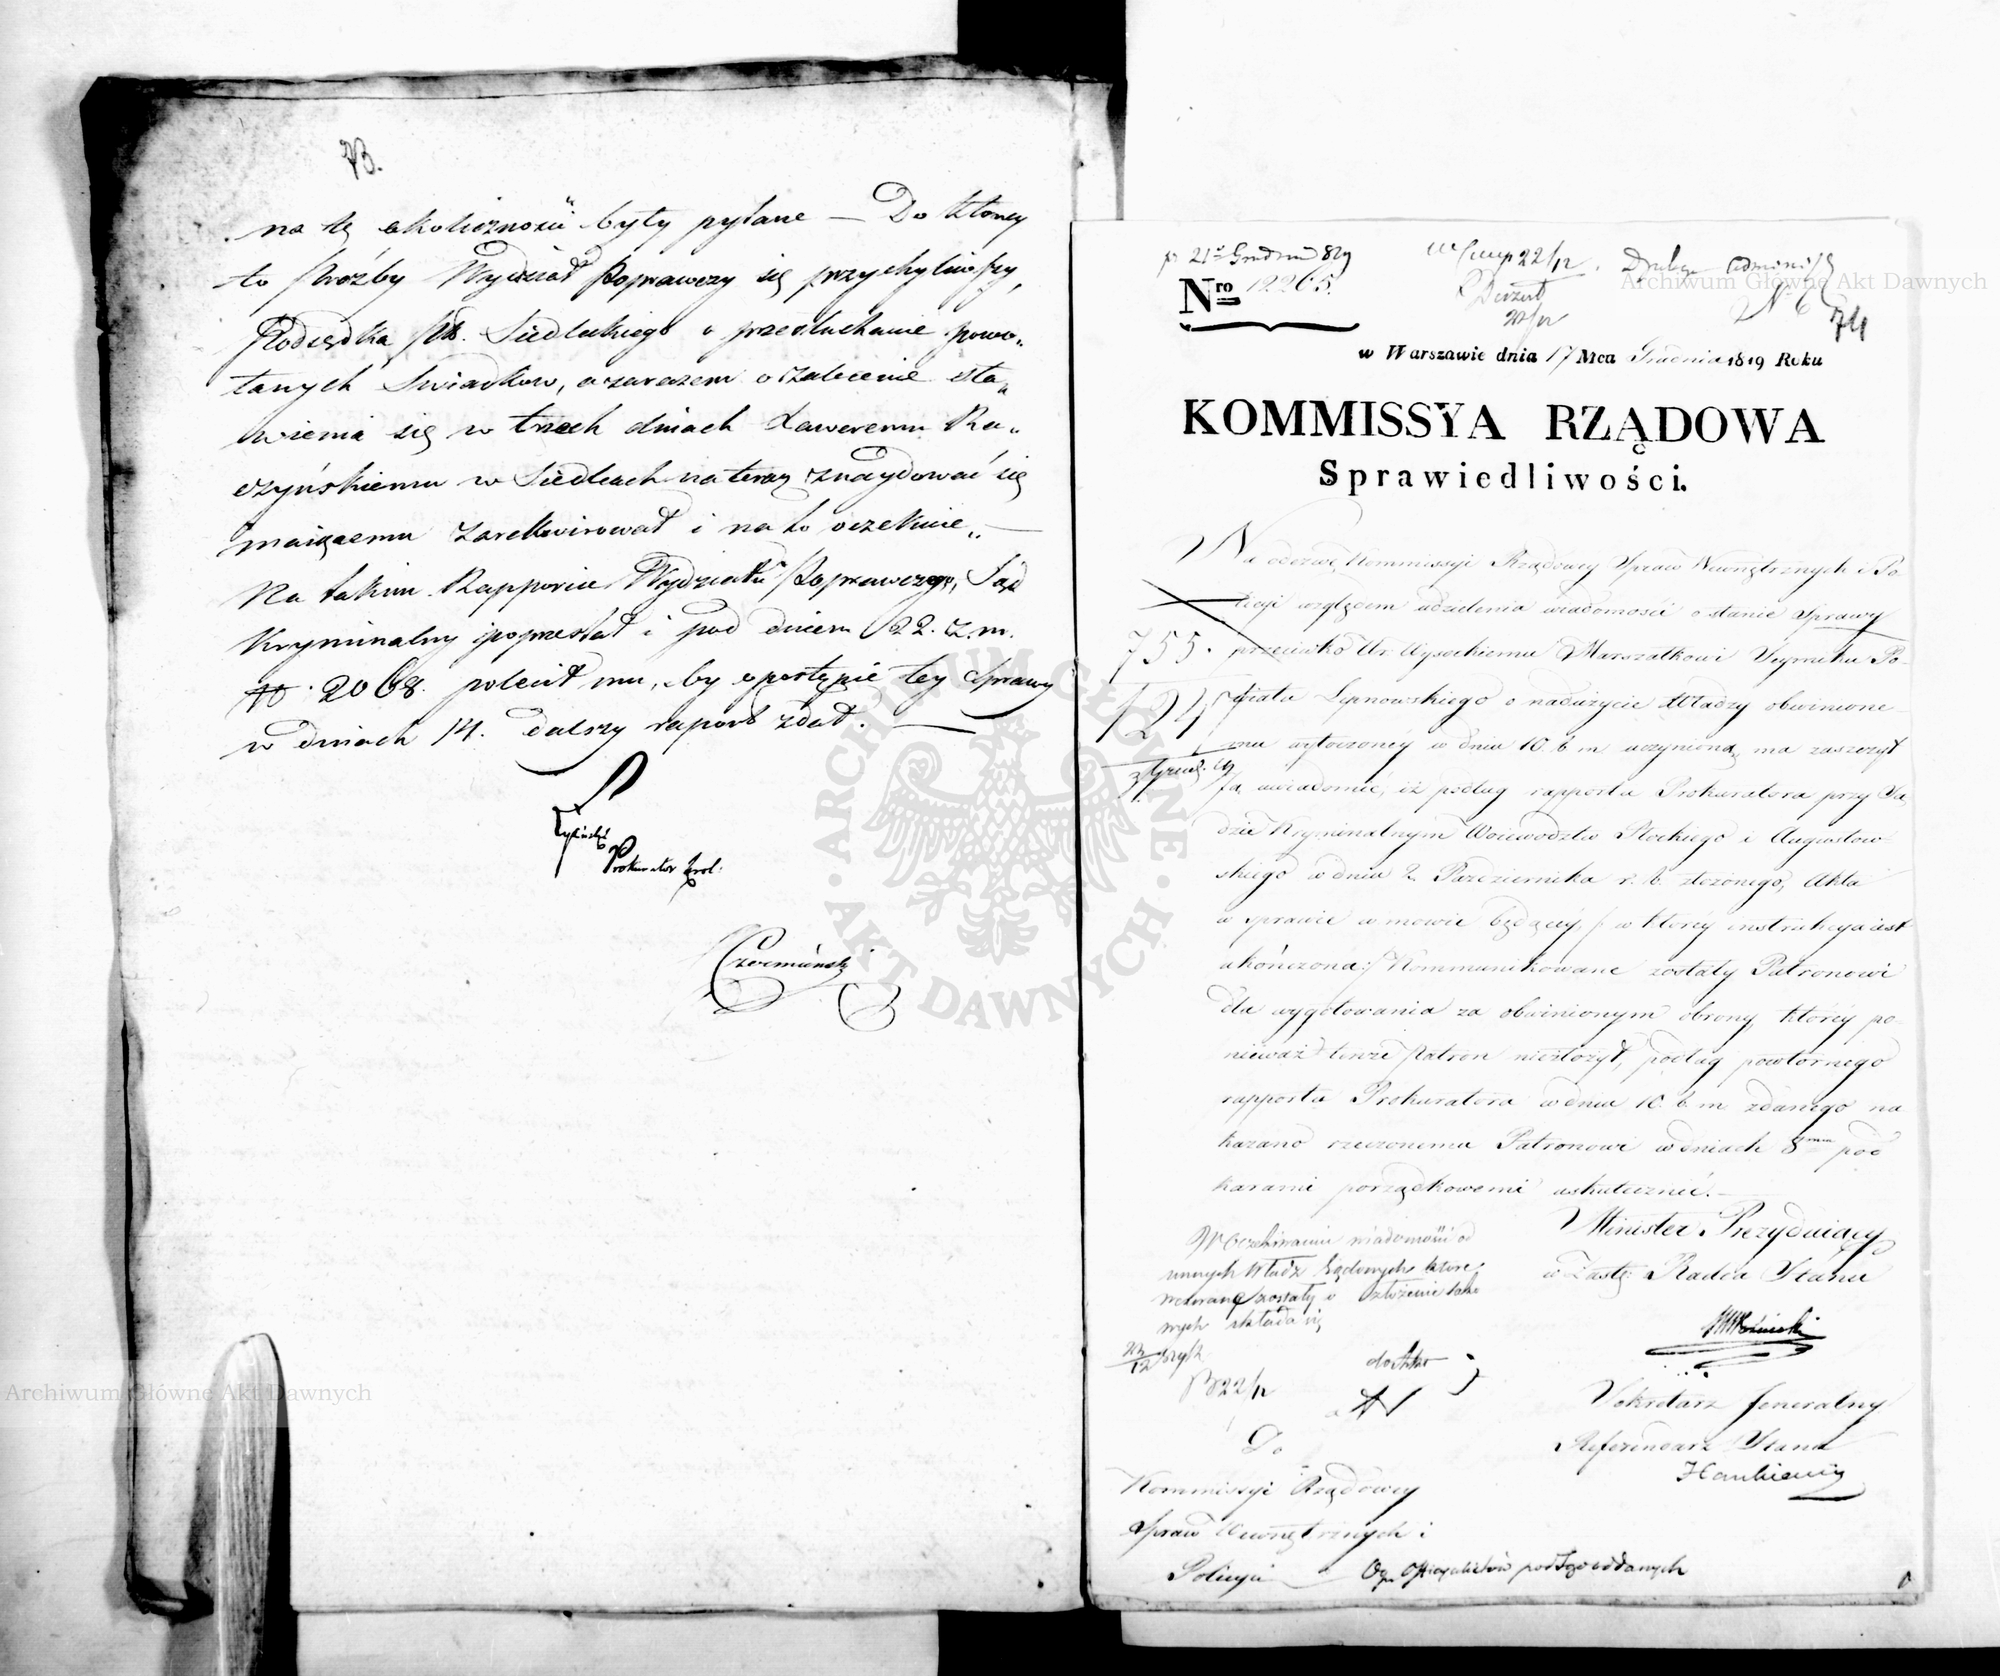 73.
na tę okoliczność byty pytane — Do ktorey
to proźby Wydział Poprawczy się przychyliwszy,
Podsędka Ptu. Siedleckiego o przesłuchanie powo„
łanych Swiadkow, a zarazem o zalecenie sta„
wienia się w trzech dniach Xaweremu Ra„
czyńskiemu w Siedlcach na teraz znaydować się
maiącemu zarekwirował i na to oczekuie„ —
Na takim Rapporcie Wydziału Poprawczego, Sąd
Kryminalny poprzestał i pod dniem 22. z. m.
N. 2068. polecił mu, by o postępie tey Sprawy
w dniach 14. dalszy raport zdał. —
Prokurator Krol.
Czwemiński
pr 21º Grudnia 819
Nro 12265.
22/12
N 6
74
w Warszawie dnia 17 Mca Grudnia 1819 Roku
KOMMISSYA RZĄDOWA
Sprawiedliwości.
Na odezwę Kommissyi Rządowey Spraw Wewnętrznych i Po
licyi względem udzielenia wiadomości o stanie Sprawy
755.
przeciwko Ur. Wysockiemu Marszałkowi Seymiku Po-
wiatu Lipnowskiego o nadużycie Władzy obwinione-
mu wytoczoney w dniu 10. b. m. uczynioną, ma zaszczyt
Ją uwiadomić, iż podług rapportu Prokuratora przy Są
dzie Kryminalnym Woiewodztw Płockiego i Augustow-
skiego w dniu 2. Pazdziernika r. b. złożonego, Akta
w sprawie w mowie będącey /: w ktorey instrukcya iest
ukończona :/ Kommunikowane zostały Patronowi
dla wygotowania za obwinionym obrony, ktorey po-
nieważ tenże Patron niezłożył, podług powtornego
rapportu Prokuratora w dniu 10. b. m. zdanego na
kazano rzeczonemu Patronowi w dniach 8miu pod
karami porządkowemi uskutecznić. —
Minister Prezyduiący
w Zastę. Radca Stanu
W Oczekiwaniu wiadomości od
innych Władz Sądowych ktore
wezwane zostały o złożenie tako
wych składa się
23/12
22/12
Sekretarz Jeneralny
Referendarz Stanu
Hankiewicz
Do
Kommissyi Rządowey
Spraw Wewnętrznych i
Policyi
Officyalistów pod Sąd oddanych
ARCHIWUM GŁÓWNE · AKT DAWNYCH ·
Archiwum Główne Akt Dawnych
Archiwum Główne Akt Dawnych